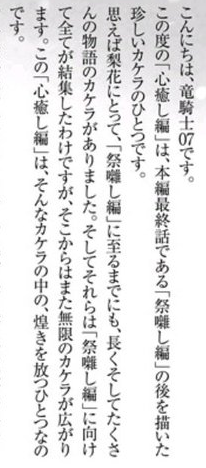 こんにちは、竜騎士07です。
この度の「心癒し編」は、本編最終話である「祭囃し編」の後を描いた
珍しいカケラのひとつです。
思えば梨花にとって、「祭囃し編」に至るまでにも、長くそしてたくさ
んの物語のカケラがありました。そしてそれらは「祭囃し編」に向け
て全てが結集したわけですが、そこからはまた無限のカケラが広がり
ます。この「心癒し編」は、そんなカケラの中の、煌きを放つひとつなの
です。